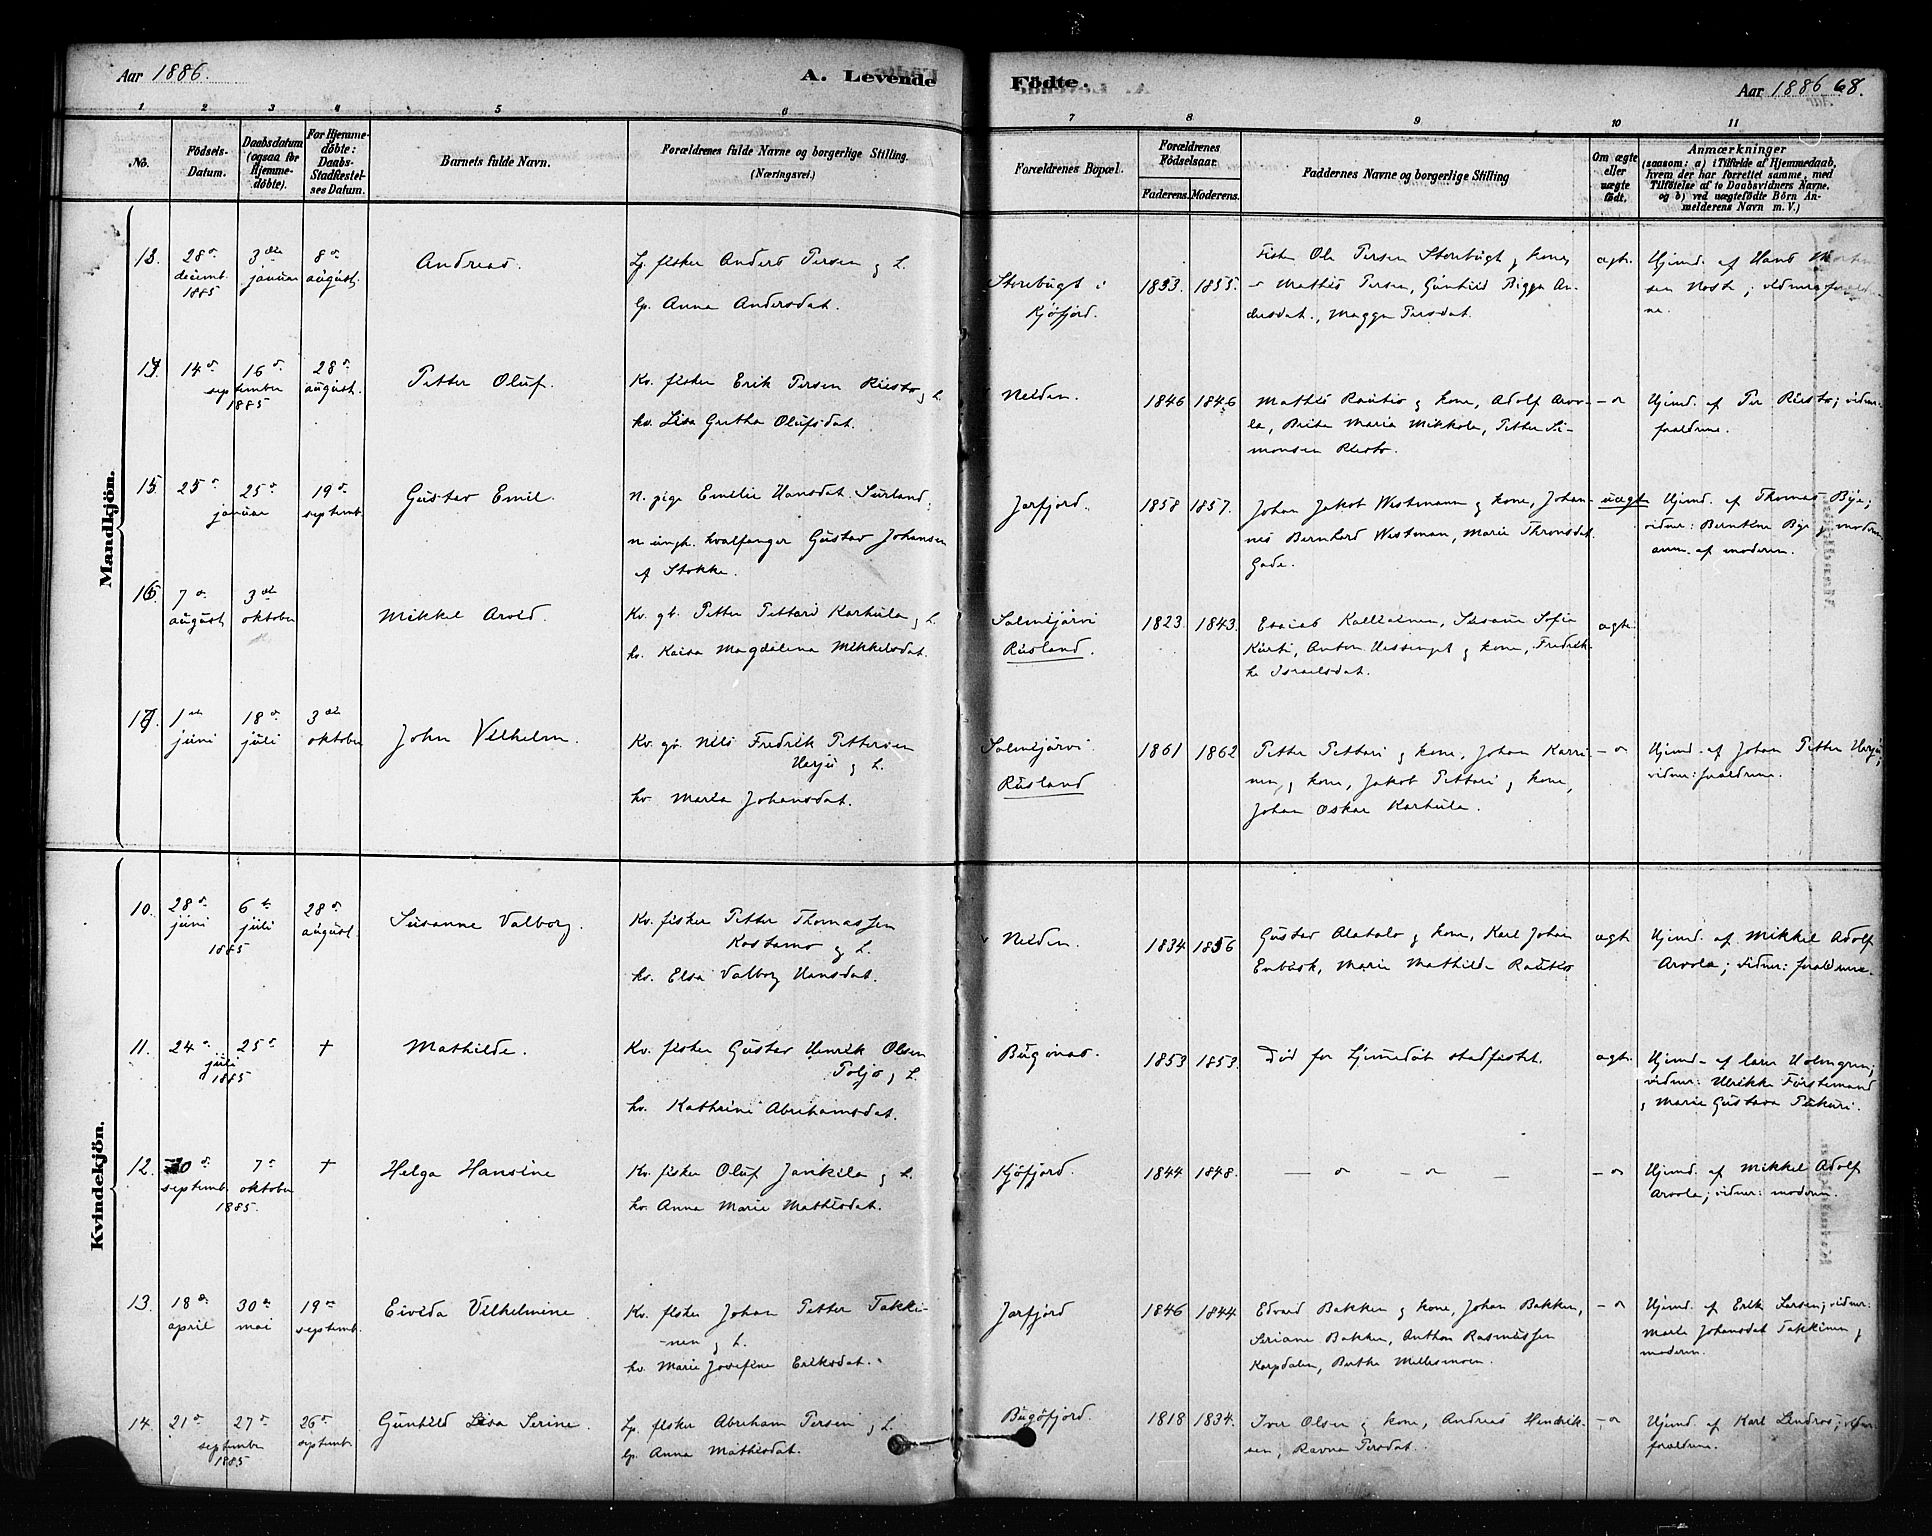 Aar 1886.
A. Levende
Födte.
Aar 1886 68.
1 2 3 4 5 6 7 8 9 10 11
No.
Födsels-
Datum.
Daabsdatum
(ogsaa for
Hjemme-
döbte).
For Hjemme-
döbte:
Daabs-
Stadfæstel-
ses Datum.
Barnets fulde Navn.
Forældrenes fulde Navne og borgerlige Stilling.
(Næringsvei.)
Forældrenes Bopæl.
Forældrenes
Födselsaar.
Faderens. Moderens.
Faddernes Navne og borgerlige Stilling
Om ægte
eller
uægte
födt.
Anmærkninger
(saasom: a) i Tilfælde af Hjemmedaab,
hvem der har forrettet samme, med
Tilföielse af to Daabsvidners Navne,
og b) ved uægtefödte Börn An-
melderens Navn m. V.)
Mandkjön.
13.
28
decemb.
1885
3die
januar
8
august
Andreas.
Lp. fisker Anders Persen & h.
lp. Anna Andersdat.
Storebugt i
Kjöfjord.
1853 1855.
Fisker Ole Persen Storebugt & kone,
Mathis Persen, Gunhild Bigga An-
dersdat., Magga Persdat.
ægt.
Hjemd. af Hans
14.
14 16
september
1885
28
august.
Petter Oluf.
Kv. fisker Erik Persen Riesto & h.
kv. Lisa Gretha Olufsdat.
Neiden.
1846 1846
Mathis Rautio & kone, Adolf Arvo-
la, Brita Maria Mikkola, Petter Si-
monsen Riesto.
Hjemd. af Per Riesto; vidner:
forældrene.
15
25 25
januar
19
septemb.
Gustav Emil.
n. pige Emilie Hansdat. Surland,
n. ungk. hvalfanger Gustav Johansen
af Stokke.
Jarfjord.
1858 1857.
Johan Jakob Westmann & kone, Johan-
nes Bernhard Westman, Marie Thronsdat.
Gade.
uægt
Hjemd. af Thomas Bye;
vidner: Berntine Bye & moderen
anm. af moderen.
16
7
august
3die
oktober
Mikkel Arvid.
Kv. gb. Petter Pettari Karhula & h.
kv. Kaisa Magdalena Mikkelsdat.
Salmijärvi
Rusland.
1823. 1843.
Esaias Kalliainen, Susanne Sofie
Kurti, Anton Hessinget & kone, Fredrik-
ke Israelsdat.
ægt.
17.
1ste
juni
18
juli
3die
oktober
John Vilhelm.
Kv. gb. Nils Fredrik Pettersen
Harju & h.
kv. Maria Johansdat.
Salmijärvi.
Rusland
1861 1862
Petter Pettari & kone, Johan Karri-
nen & kone, Jakob Pettari & kone,
Johan Oskar Karhula.
Hjemd. af Johan Petter Harju;
vidner: forældrene.
Kvindekjön.
10.
28
juni
6te
juli
1885
28
august.
Susanne Valborg.
Kv. fisker Petter Thomassen
Kostamo & h.
kv. Elsa Valborg Hansdat.
Neiden.
1834 1856
Gustav Alatalo & kone, Karl Johan
Enbusk, Marie Mathilde Rautio
ægt.
Hjemd. af Mikkel Adolf
Arvola; vidner: forældrene.
11.
24 25
juli
1885
†
Mathilde.
Kv. fisker Gustav Henrik Olsen
Poljo & h.
kv. Kathrine Abrahamsdat.
Bugönæs.
1853 1853.
Död för hjemmedöbt stadfæstet.
ægt.
Hjemd. af lærer Holmgren;
vidner: Ulrikke Förstemand
& Marie Gustava Pukuri.
12.
30
septemb.
7
oktober
1885.
†
Helga Hansine
Kv. fisker Oluf Jankila & h.
kv. Anna Marie Mathisdat.
Kjöfjord.
1844 1848.
Hjemd. af Mikkel Adolf
Arvola; vidner: moderen.
13.
18
april
30
mai
19
septemb.
Eivida Vilhelmine
Kv. fisker Johan Petter Takki-
nen & h.
kv. Marie Josefine Eriksdat.
Jarfjord
1846 1844
Edvard Bakken & kone, Johan Bakken,
Seriane Bakken, Anthon Rasmussen
Karpdalen, Berthe Millesmoen.
Hjemd. af Erik Larsen; vidner:
Maria Johansdat. Takkinen &
moderen.
14.
21 27
september
1885
26
septemb.
Gunhild Lisa Serine.
Lp. fisker Abraham Persen & h.
lp. Anna Mathisdat.
Bugöfjord.
1818 1834.
Iver Olsen & kone, Andreas Hendrik-
sen, Ravna Persdat.
Hjemd. af Karl Lindros; vidner:
forældrene.